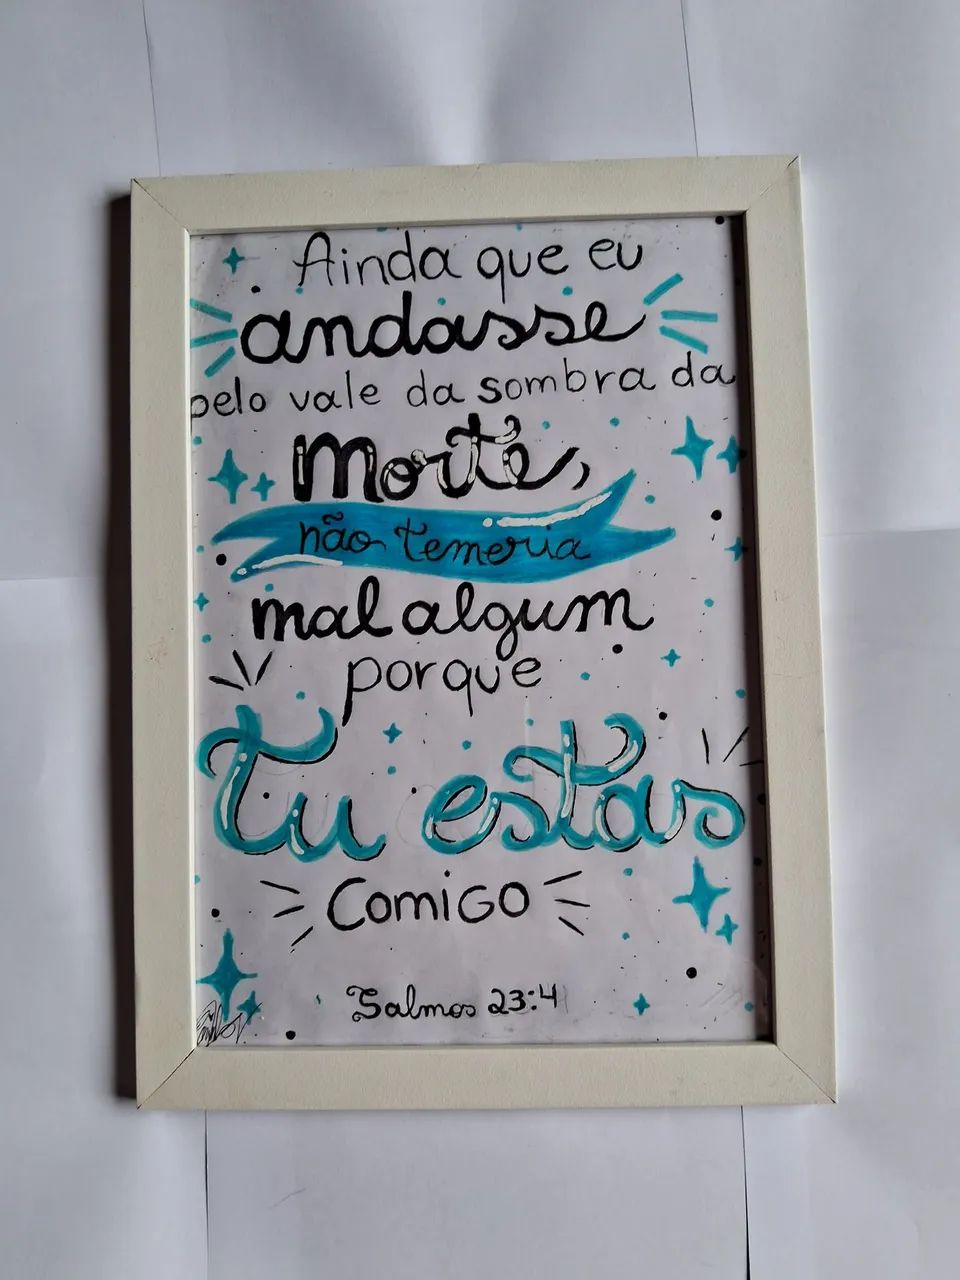 Ainda que eu
andasse
pelo vale da sombra da
Morte,
não temeria
mal algum
porque
Tu estas
Comigo
Salmos 23:4